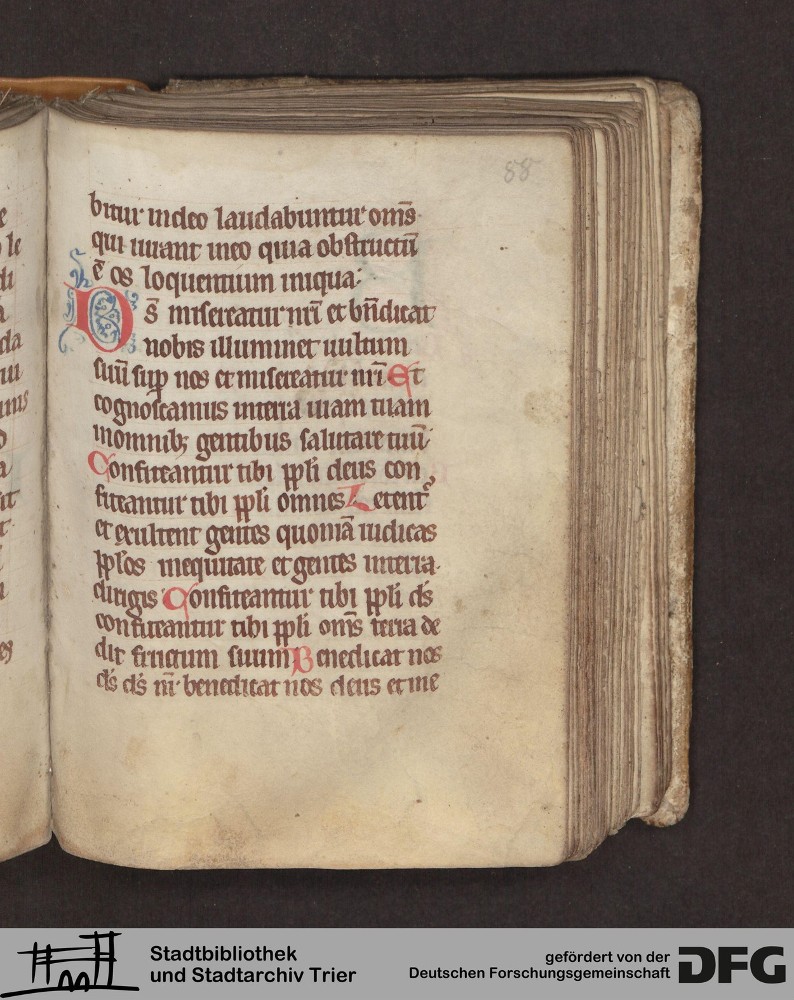 88
bitur in deo laudabuntur om̅s
qui iurant in eo quia obstructu̅
e̅ os loquentium iniqua:
Ds̅ misereatur nr̅i et bn̅dicat
nobis illuminet uultum
suu̅ sup̱ nos et misereatur nr̅i Et
cognoscamus in terra uiam tuam
in omnibꝫ gentibus salutare tuu̅
Confiteantur tibi pp̱li deus con
fiteantur tibi pp̱li omnes Letent᷑
et exultent gentes quonia̅ iudicas
pp̱los in equitate et gentes in terra
dirigis Confiteantur tibi pp̱li ds̅
confiteantur tibi pp̱li om̅s terra de
dit fructum suum Benedicat nos
ds̅ ds̅ nr̅ benedicat nos deus et me
Stadtbibliothek
und Stadtarchiv Trier
gefördert von der
Deutschen Forschungsgemeinschaft
DFG